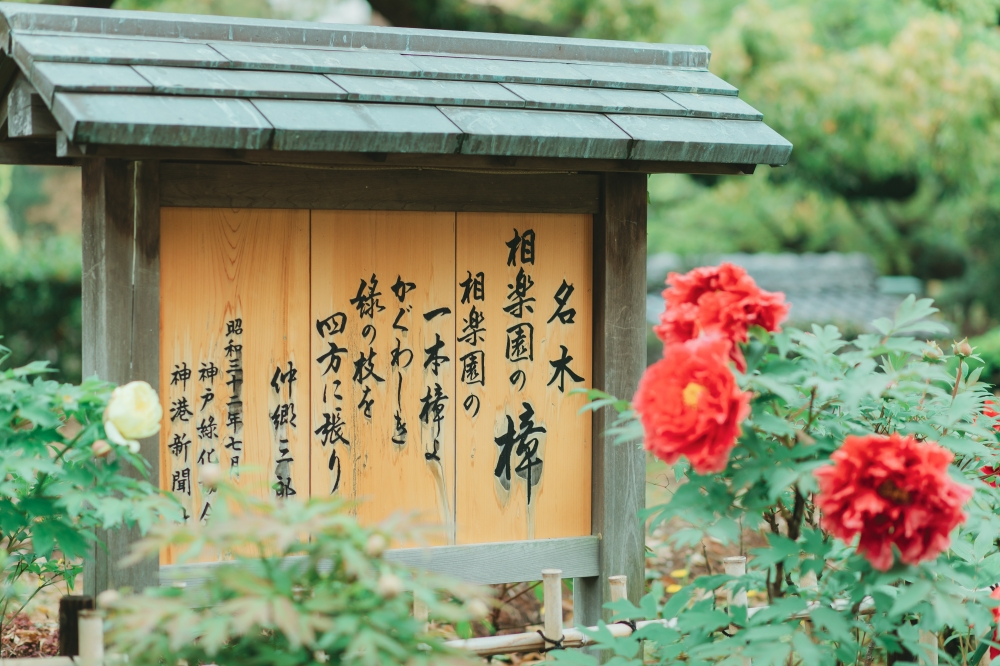 名木
相楽園の樟
相楽園の
一本樟よ
かぐわしき
緑の枝を
四方に張り
仲郷三郎
昭和三十二年七月
神戸緑化
神港新聞